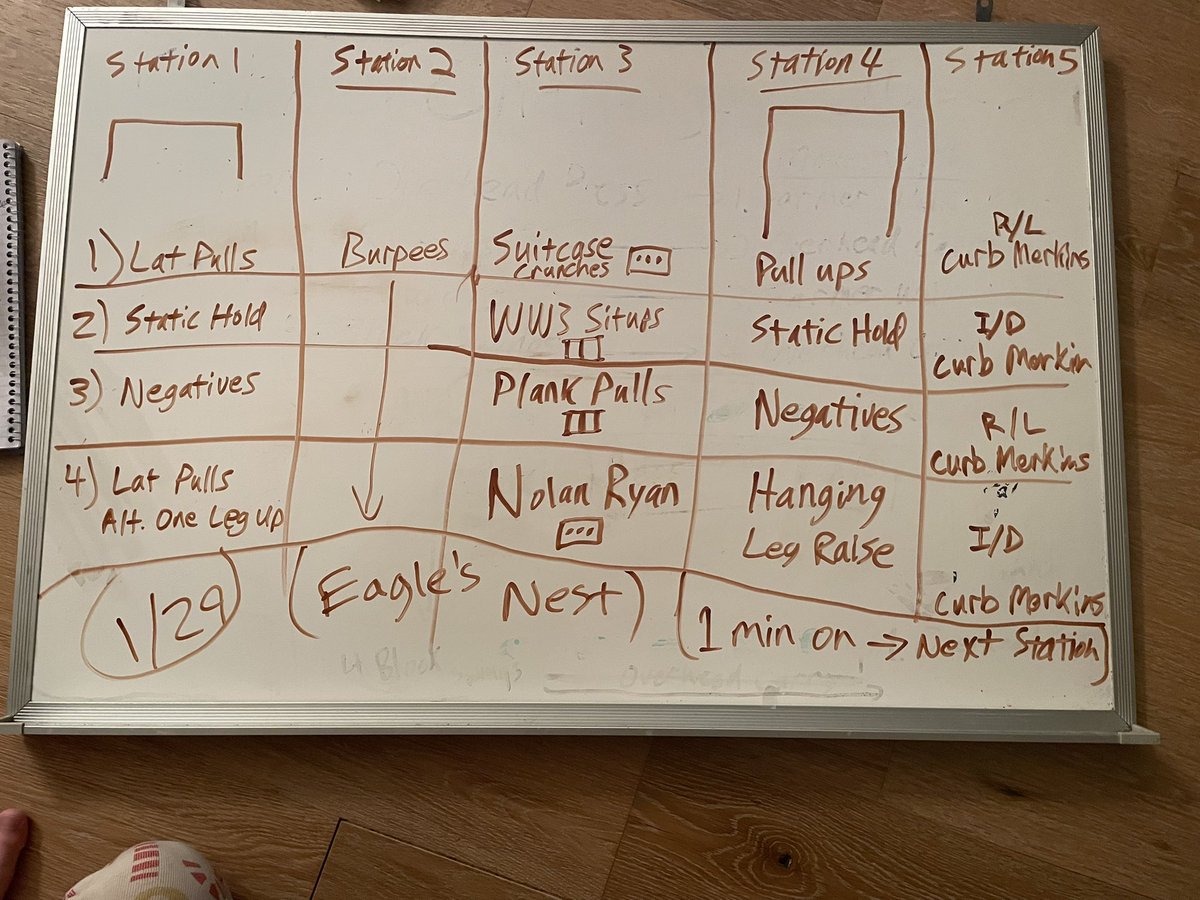 Station 1
Station 2
Station 3
Station 4
Station 5
1) Lat Pulls
Burpees
Suitcase
Crunches
Pull ups
R/L
Curb Merkins
2) Static Hold
WW3 Situps
Static Hold
I/D
Curb Merkin
3) Negatives
Plank Pulls
Negatives
R/L
Curb Merkins
4) Lat Pulls
Alt. One Leg Up
Nolan Ryan
Hanging
Leg Raise
I/D
Curb Merkins
1/29
(Eagle's Nest)
1 min on → Next Station